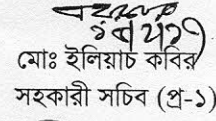 মোঃ ইলিয়াচ কবির
সহকারী সচিব (প্র-১)